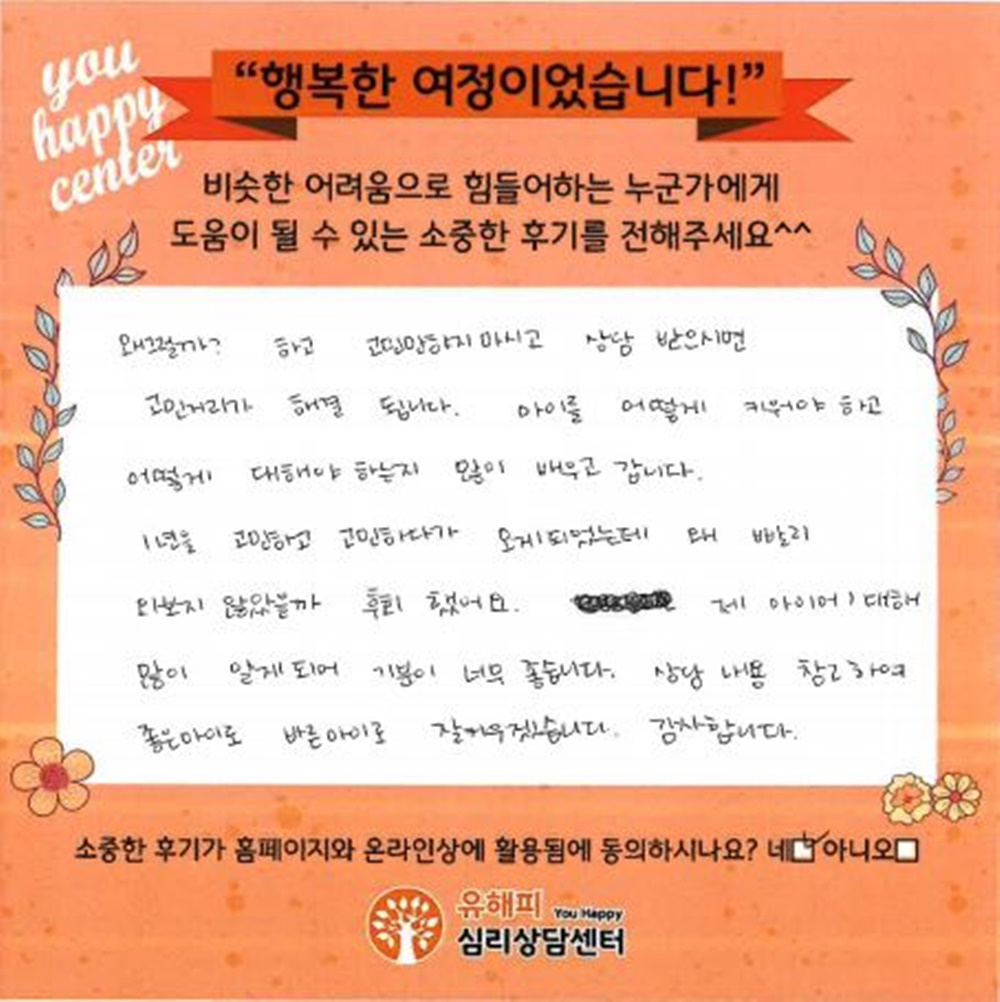 you
happy
center
“행복한 여정이었습니다!”
비슷한 어려움으로 힘들어하는 누군가에게
도움이 될 수 있는 소중한 후기를 전해주세요^^
왜그럴까? 하고 고민만하지 마시고 상담 받으시면
고민거리가 해결 됩니다. 아이를 어떻게 키워야 하고
어떻게 대해야 하는지 많이 배우고 갑니다.
1년을 고민하고 고민하다가 오게되었는데 왜 빨리
와보지 않았을까 후회 했어요. 제 아이에 대해
많이 알게 되어 기분이 너무 좋습니다. 상담 내용 참고하여
좋은아이로 바른아이로 잘키우겠습니다. 감사합니다.
소중한 후기가 홈페이지와 온라인상에 활용됨에 동의하시나요? 네 아니오
유해피 You Happy
심리상담센터